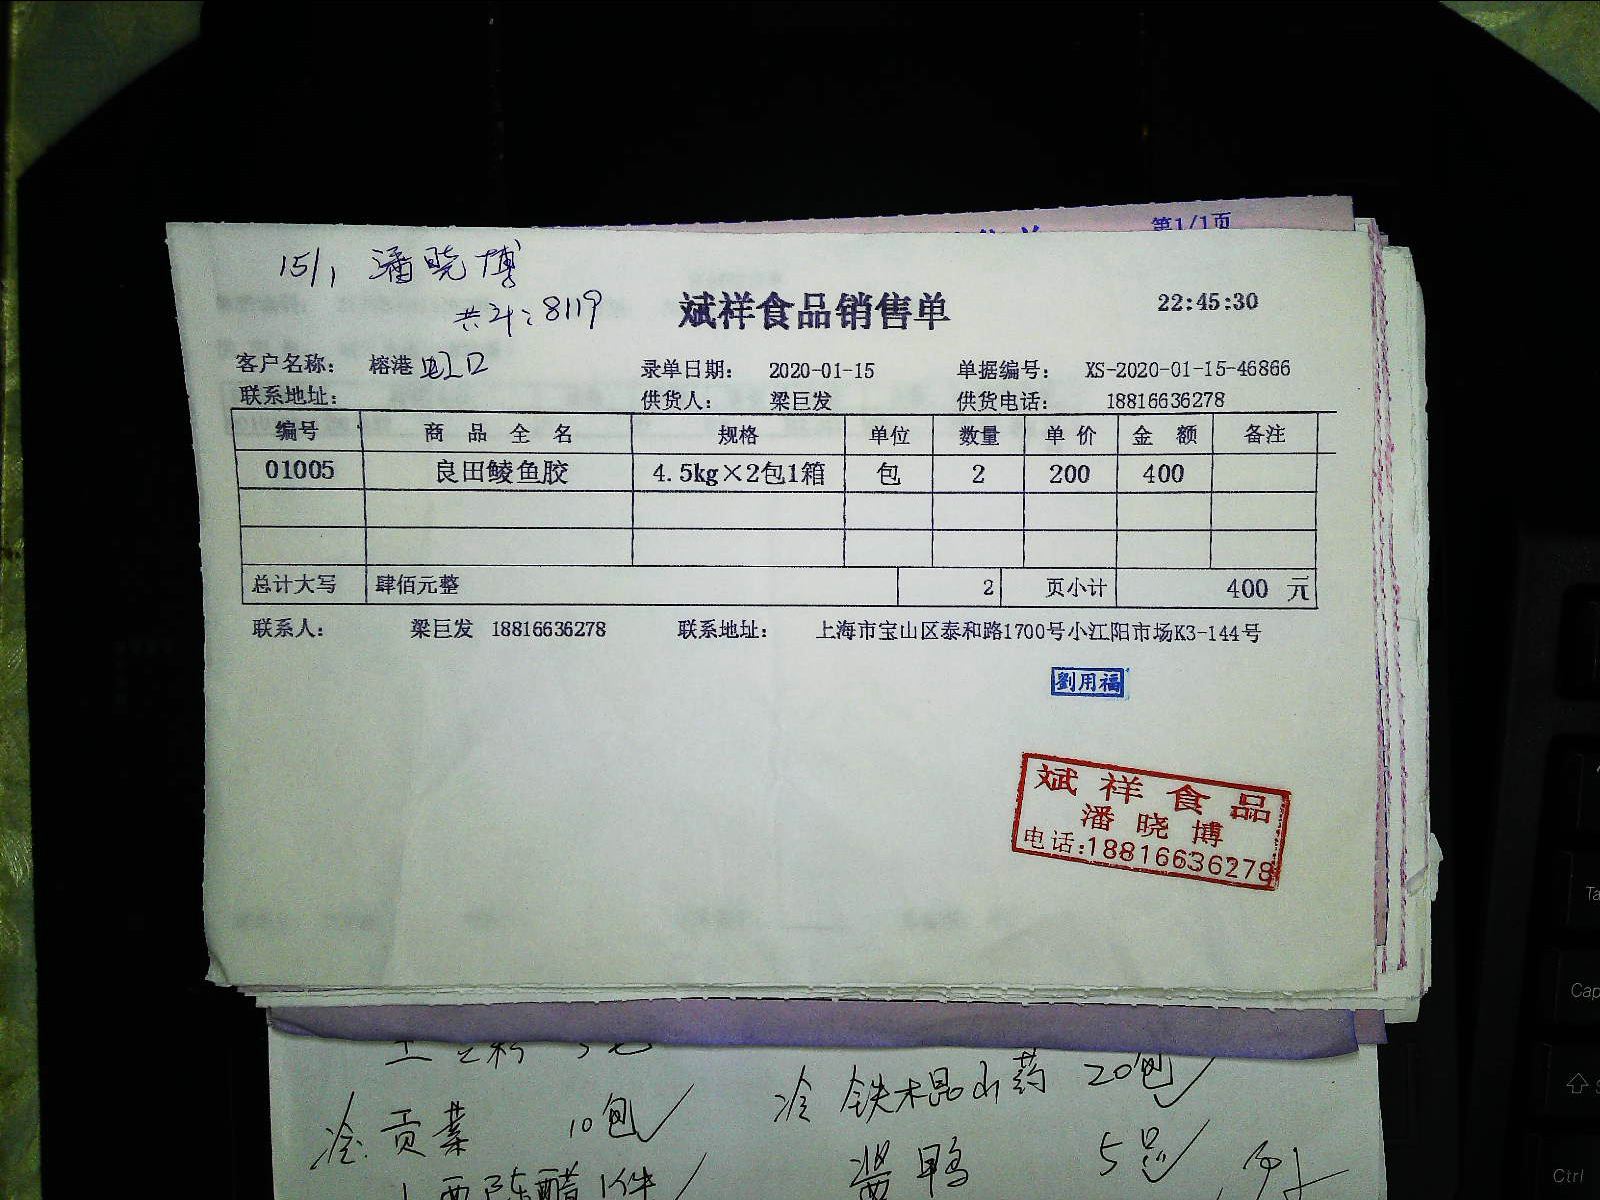 第1/1页
15/1 潘晓博
共计：8119
斌祥食品销售单 22:45:30
客户名称： 榕港 录单日期： 2020-01-15 单据编号： XS-2020-01-15-46866
联系地址： 供货人： 梁巨发 供货电话： 18816636278
编号 商品全名 规格 单位 数量 单价 金额 备注
01005 良田鲮鱼胶 4.5kg×2包1箱 包 2 200 400
总计大写 肆佰元整 2 页小计 400 元
联系人： 梁巨发 18816636278 联系地址： 上海市宝山区泰和路1700号小江阳市场K3-144号
劉用福
斌祥食品
潘晓博
电话:18816636278
冷 铁棍山药 20包
冷 贡菜 10包
酱鸭 5只
山西陈醋 1件
Ctrl